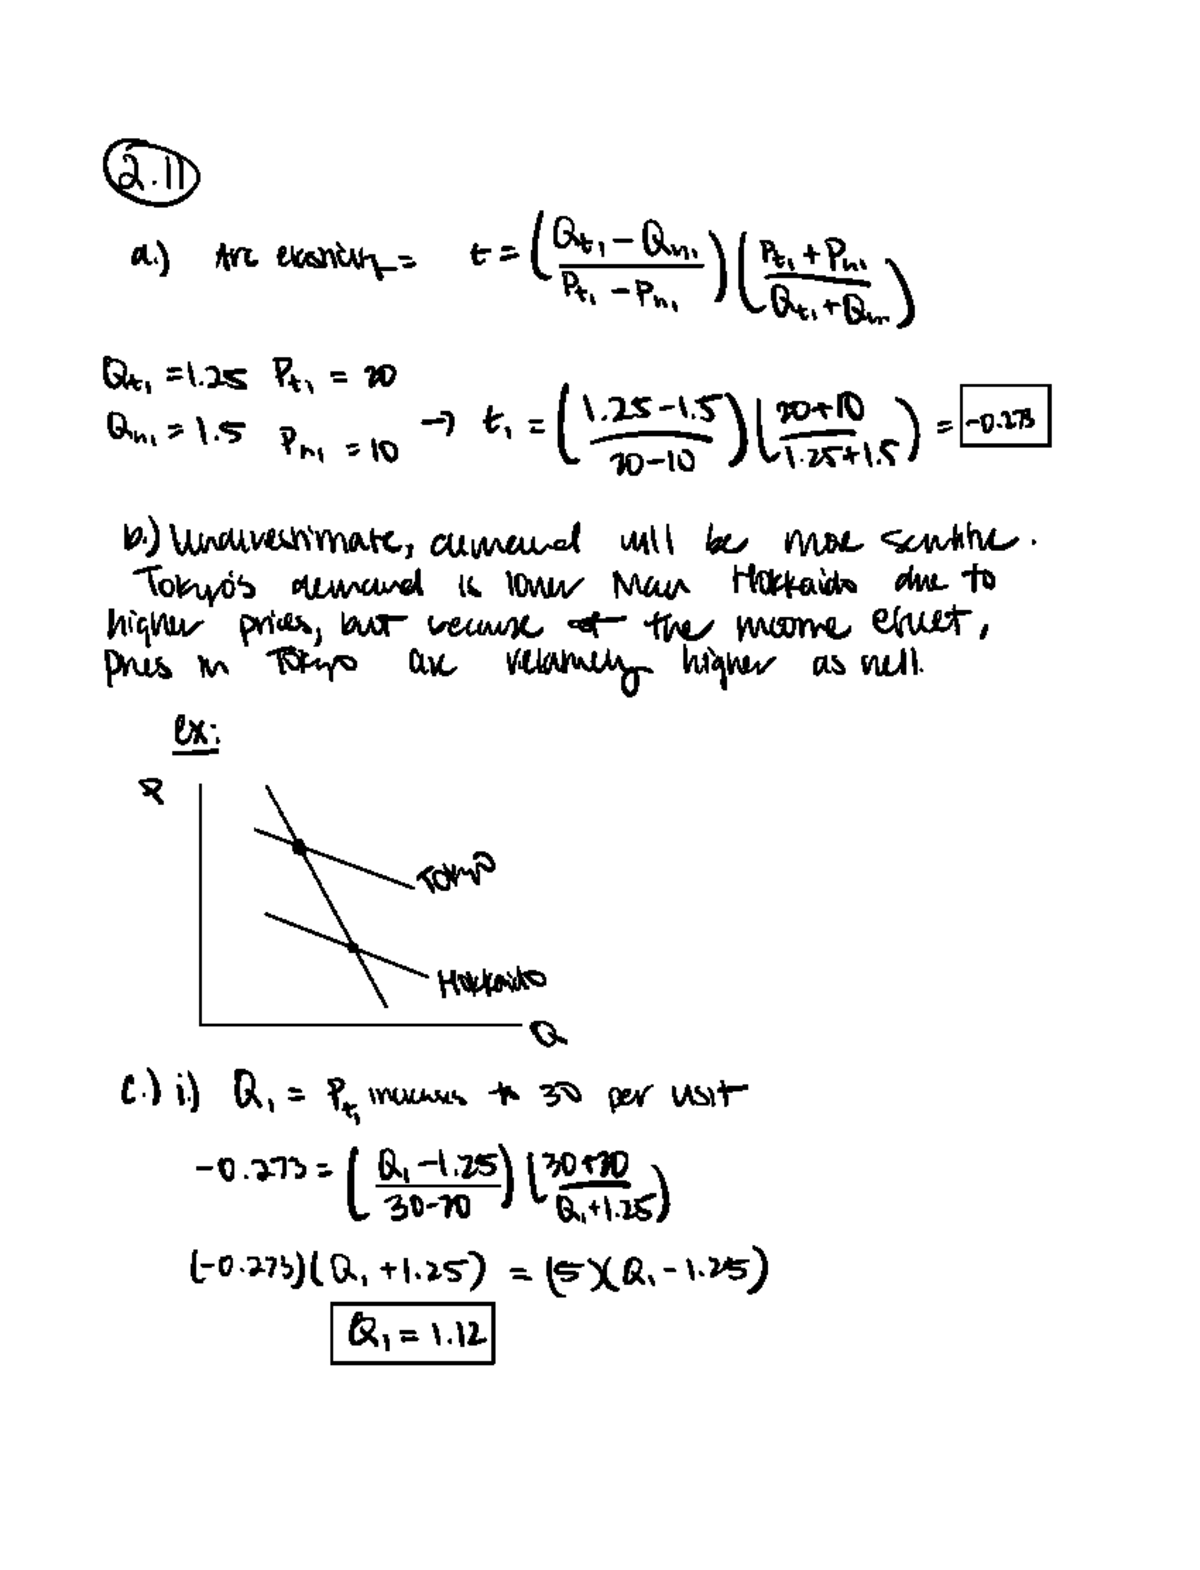 2.11
a.) Arc elasticity = t = (Qt₁ - Qh₁ / Pt₁ - Ph₁) (Pt₁ + Ph₁ / Qt₁ + Qh₁)
Qt₁ = 1.25 Pt₁ = 20
Qh₁ = 1.5 Ph₁ = 10 → t₁ = (1.25 - 1.5 / 20 - 10) (20 + 10 / 1.25 + 1.5) = -0.273
b.) Underestimate, demand will be more sensitive.
Tokyo's demand is lower than Hokkaido due to
higher prices, but because of the income effect,
prices in Tokyo are relatively higher as well.
ex:
P
Tokyo
Hokkaido
Q
c.) i.) Q₁ = Pt₁ increases to 30 per unit
-0.273 = (Q₁ - 1.25 / 30 - 20) (30 + 20 / Q₁ + 1.25)
(-0.273)(Q₁ + 1.25) = (5)(Q₁ - 1.25)
Q₁ = 1.12